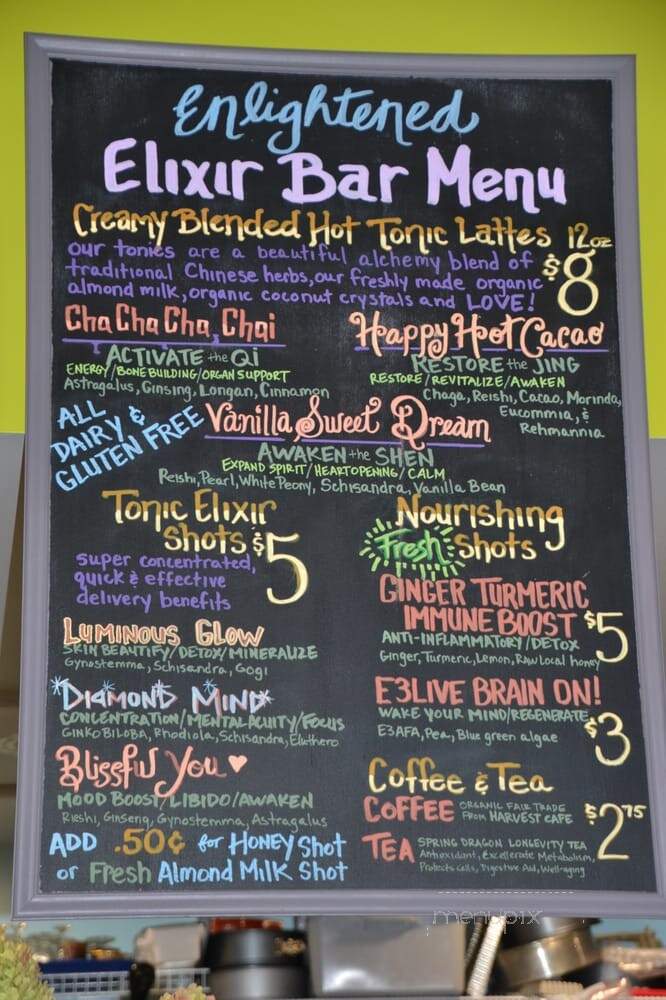 Enlightened
Elixir Bar Menu
Creamy Blended Hot Tonic Lattes 12oz
our tonics are a beautiful alchemy blend of
traditional Chinese herbs, our freshly made organic
almond milk, organic coconut crystals and LOVE!
$8
Cha Cha Cha Chai
ACTIVATE the Qi
ENERGY/BONE BUILDING/ORGAN SUPPORT
Astragalus, Ginsing, Longan, Cinnamon
Happy Hot Cacao
RESTORE the JING
RESTORE/REVITALIZE/AWAKEN
Chaga, Reishi, Cacao, Morinda,
Eucommia, &
Rehmannia
ALL
DAIRY &
GLUTEN FREE
Vanilla Sweet Dream
AWAKEN the SHEN
EXPAND SPIRIT/HEARTOPENING/CALM
Reishi, Pearl, White Peony, Schisandra, Vanilla Bean
Tonic Elixir
Shots $5
super concentrated,
quick & effective
delivery benefits
LUMINOUS GLOW
SKIN BEAUTIFY/DETOX/MINERALIZE
Gynostemma, Schisandra, Gogi
DIAMOND MIND
CONCENTRATION/MENTAL ACUITY/FOCUS
GINKO BILOBA, Rhodiola, Schisandra, Eluthero
Blissful You
MOOD BOOST/LIBIDO/AWAKEN
Rieshi, Ginseng, Gynostemma, Astragalus
ADD .50¢ for HONEY Shot
or Fresh Almond Milk Shot
Nourishing
Fresh Shots
GINGER TURMERIC
IMMUNE BOOST $5
ANTI-INFLAMMATORY/DETOX
Ginger, Turmeric, Lemon, RAW Local honey
E3LIVE BRAIN ON!
WAKE YOUR MIND/REGENERATE
E3AFA, Pea, Blue green algae
$3
Coffee & Tea
COFFEE ORGANIC FAIR TRADE
FROM HARVEST CAFE
$2.75
TEA SPRING DRAGON LONGEVITY TEA
Antioxidant, Excellerate Metabolism,
Protects Cells, Digestive Aid, Well-aging
menupix